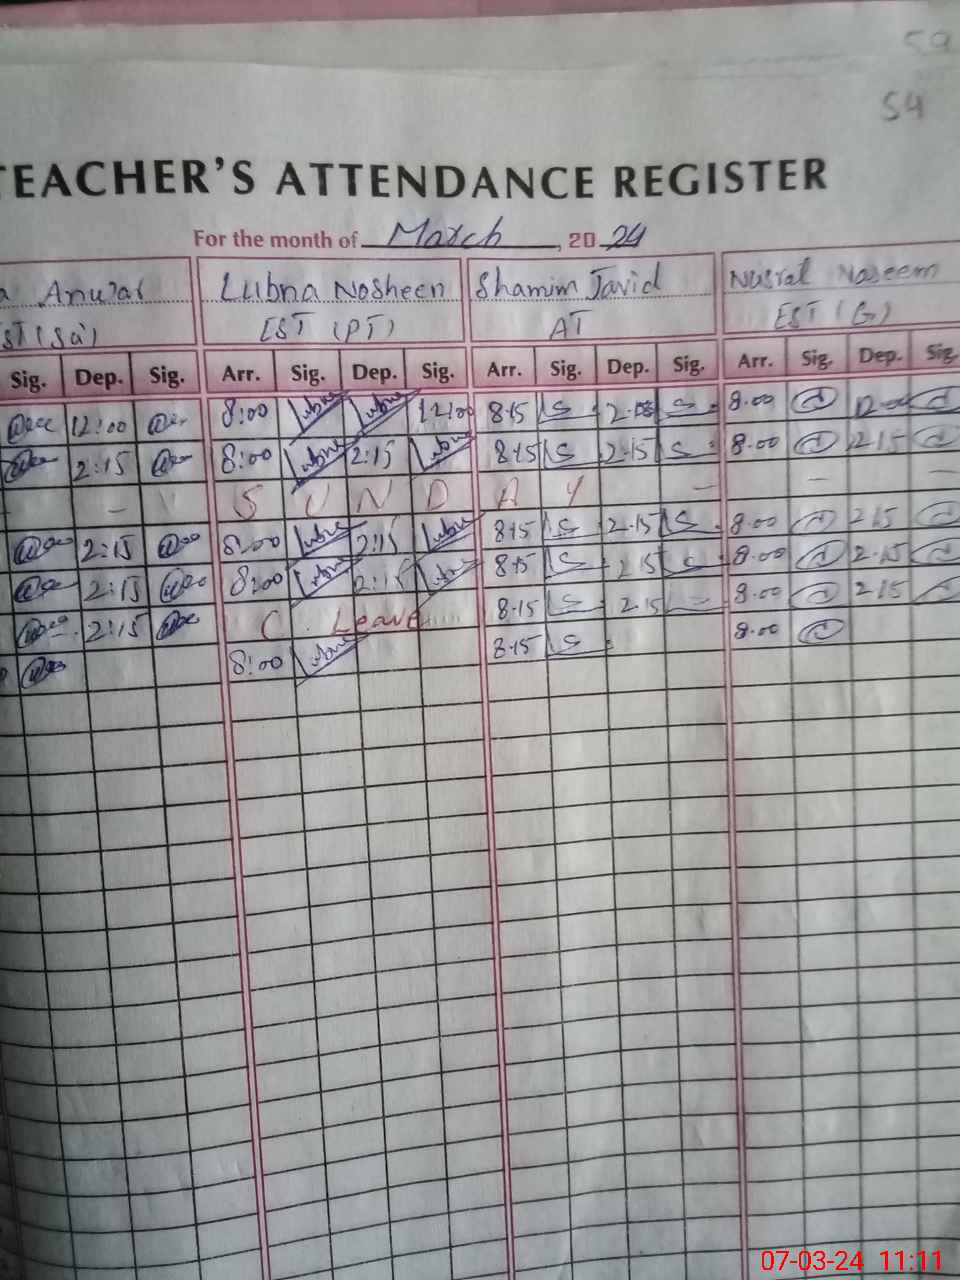 59
54
TEACHER'S ATTENDANCE REGISTER
For the month of March, 2024
Anwar Lubna Nosheen Shamim Javid Nusrat Naseem
EST (PT) AT EST (G)
Sig. Dep. Sig. Arr. Sig. Dep. Sig. Arr. Sig. Dep. Sig. Arr. Sig. Dep. Sig.
12:00 8:00 Lubna Lubna 12:00 8-15 S S 8.00
2:15 8:00 Lubna 2:15 Lubna 8-15 S 2-15 S 8.00 2 15
– S U N D A Y – – –
2:15 8:00 Lubna 2:15 Lubna 8-15 S 2-15 S 8.00 2 15
2:15 8:00 Lubna 2:15 Lubna 8-15 S 2 15 S 8.00 2.15
2:15 C. Leave 8-15 S 2 15 8.00 2 15
8:00 Lubna 8-15 S 8.00
07-03-24 11:11